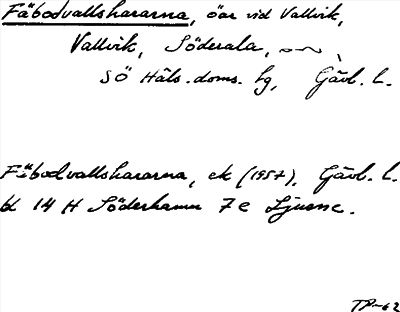 Fäbodvallshararna, öar vid Vallvik,
Vallvik, Söderala,
SÖ Häls. doms. hg, Gävl. L.
Fäbodvallshararna, ek (1957), Gävl. L.
bl 14 H Söderhamn 7e Ljusne.
TP-62